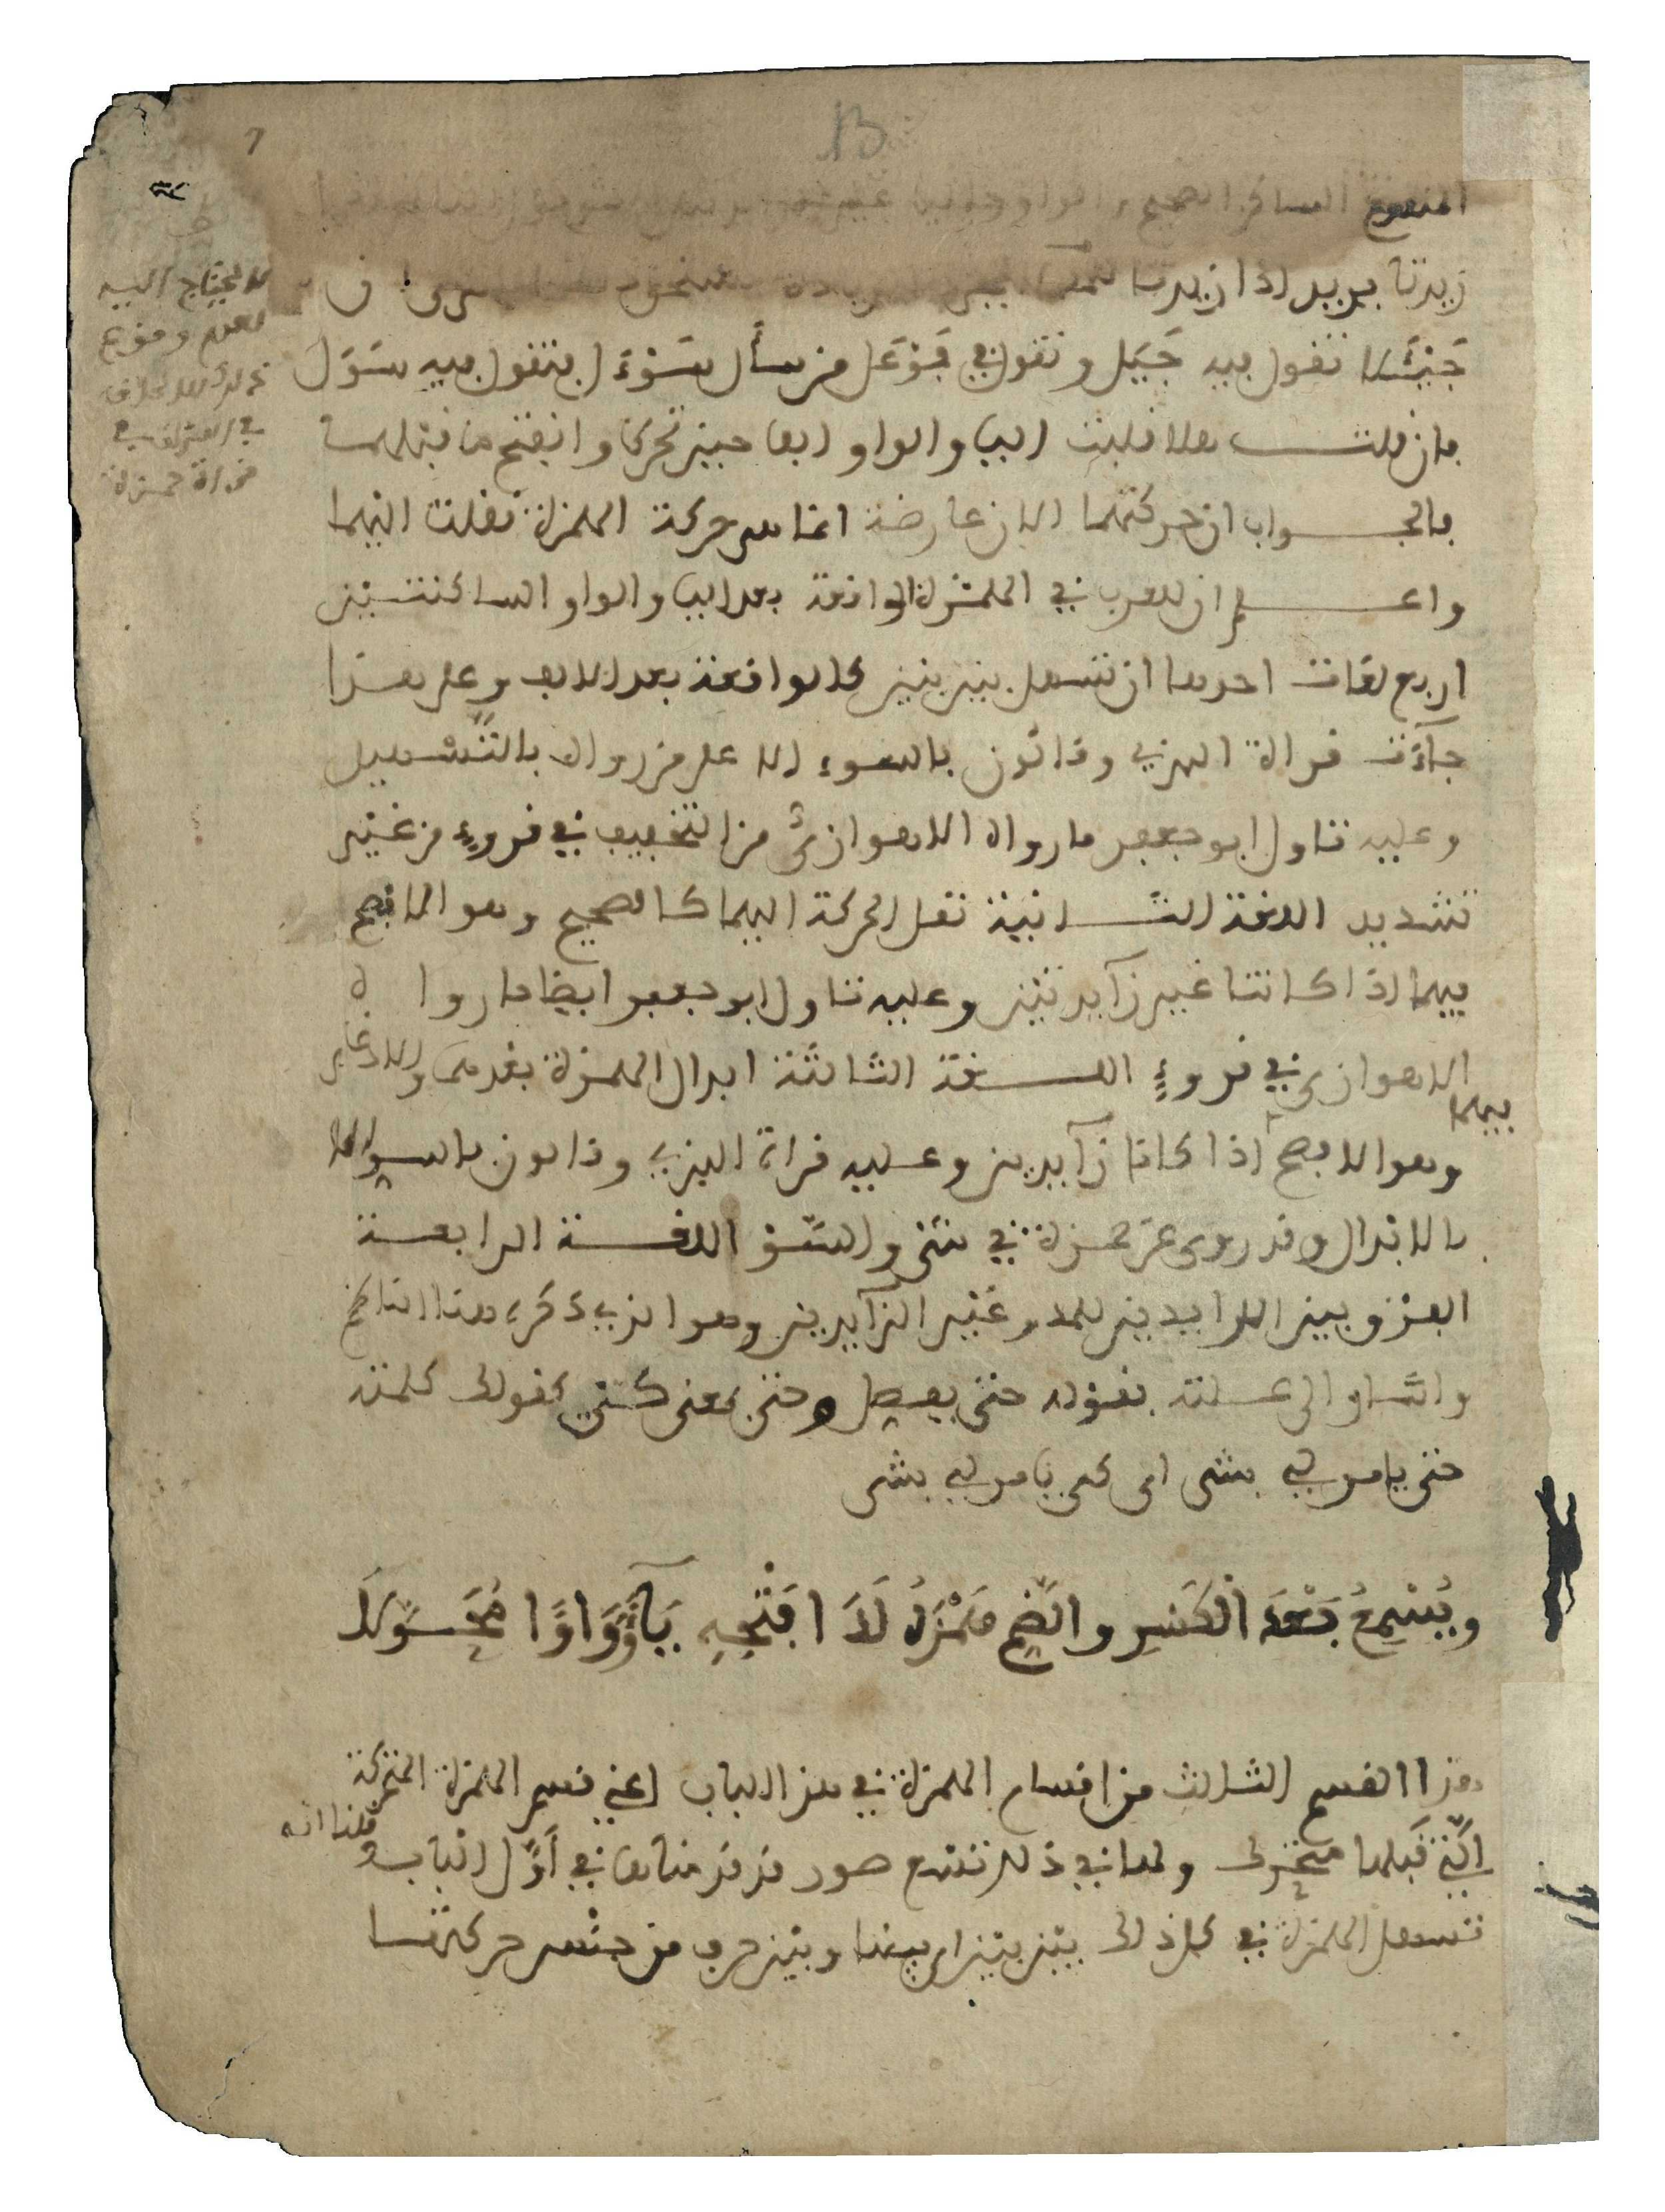 المنفوع الساكن الصحيح والواو والياء غير
زيدتا يريد اذا زيدتا للمد
جَيْئَلا تقول فيه جَيَل وتقول في فَوْعَل من سأل سَوْءَل فتقول فيه سَوَل
فان قلت هلا قلبت اليا والواو الفا حين تحركا وانفتح ما قبلهما
فالجواب ان حركتهما الان عارضة انما هي حركة الهمزة نقلت اليهما
واعلم ان للعرب في الهمزة الواقعة بعد اليا والواو الساكنتين
اربع لغات احدها ان تسهل بين بين كالواقعة بعد الالف وعلى هذا
جآءت قراة البزي وقالون بالسوء الا على من رواه بالتَّسْهيل
وعليه تناول ابو جعفر ما رواه الاهوازيُّ من التخفيف في قروءٍ من غير
تشديد اللغة الثانية نقل الحركة اليهما كالصحيح وهو الافصح
فيهما اذا كانتا غير زآيدتين وعليه تناول ابو جعفر ايضا ما رواه
الاهوازي في قروءٍ اللغة الثالثة ابدال الهمزة بعدهما والادغام
فيهما
وهو الافصح اذا كانا زآيدين وعليه قراة البزي وقالون بالسو الا
بالابدال وقد روي عن حمزة في شئ والسَّوْ اللغة الرابعة
الفرق بين الزايدين للمد وغير الزآيدين وهو الذي ذكره هنا الناظم
واشار الى علته بقوله حتى يفصل وحتى بمعنى كي كقولك كلمته
حتى يامر لي بشى اى كى يامر لي بشى
ويُسْمِعُ بَعْدَ الْكَسْرِ والضَّمِّ هَمْزَهُ لَدَا فَتْحِهِ يَآءً وَوَاوًا مُحَوَّلَا
هذا القسم الثالث من اقسام الهمزة في هذا الباب اعني قسم الهمزة المتحركة
الَّتي قَبلها متحرك ولها في ذلك تسع صور قد قدمناها في أوَّل الباب وقلنا انه
تسهل الهمزة في كل ذلك بين بين اي بينها وبين حرف من جنْس حركتها
لا يحتاج اليه
لعدم وقوع
في
قراة حمزة